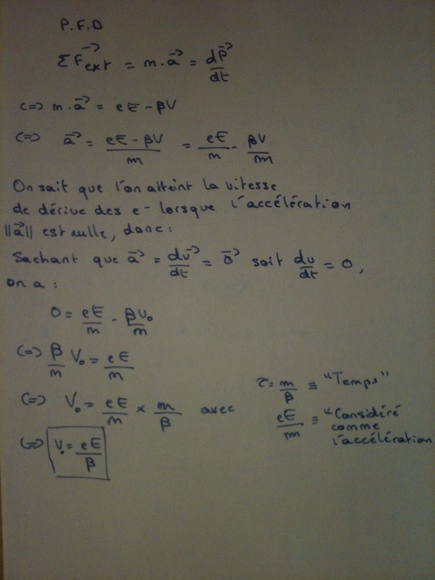 P.F.D
Σ F⃗ext = m.a⃗ = dp⃗/dt
<=> m.a⃗ = eE - βV
<=> a⃗ = (eE - βV)/m = eE/m - βV/m
On sait que l'on atteint la vitesse
de dérive des e- lorsque l'accélération
||a⃗|| est nulle, donc:
Sachant que a⃗ = dv⃗/dt = 0⃗ soit dv/dt = 0,
on a :
0 = eE/m - βV₀/m
<=> β/m V₀ = eE/m
<=> V₀ = eE/m × m/β avec
τ = m/β ≡ "Temps"
eE/m ≡ "Considéré
comme
l'accélération
<=> V₀ = eE/β